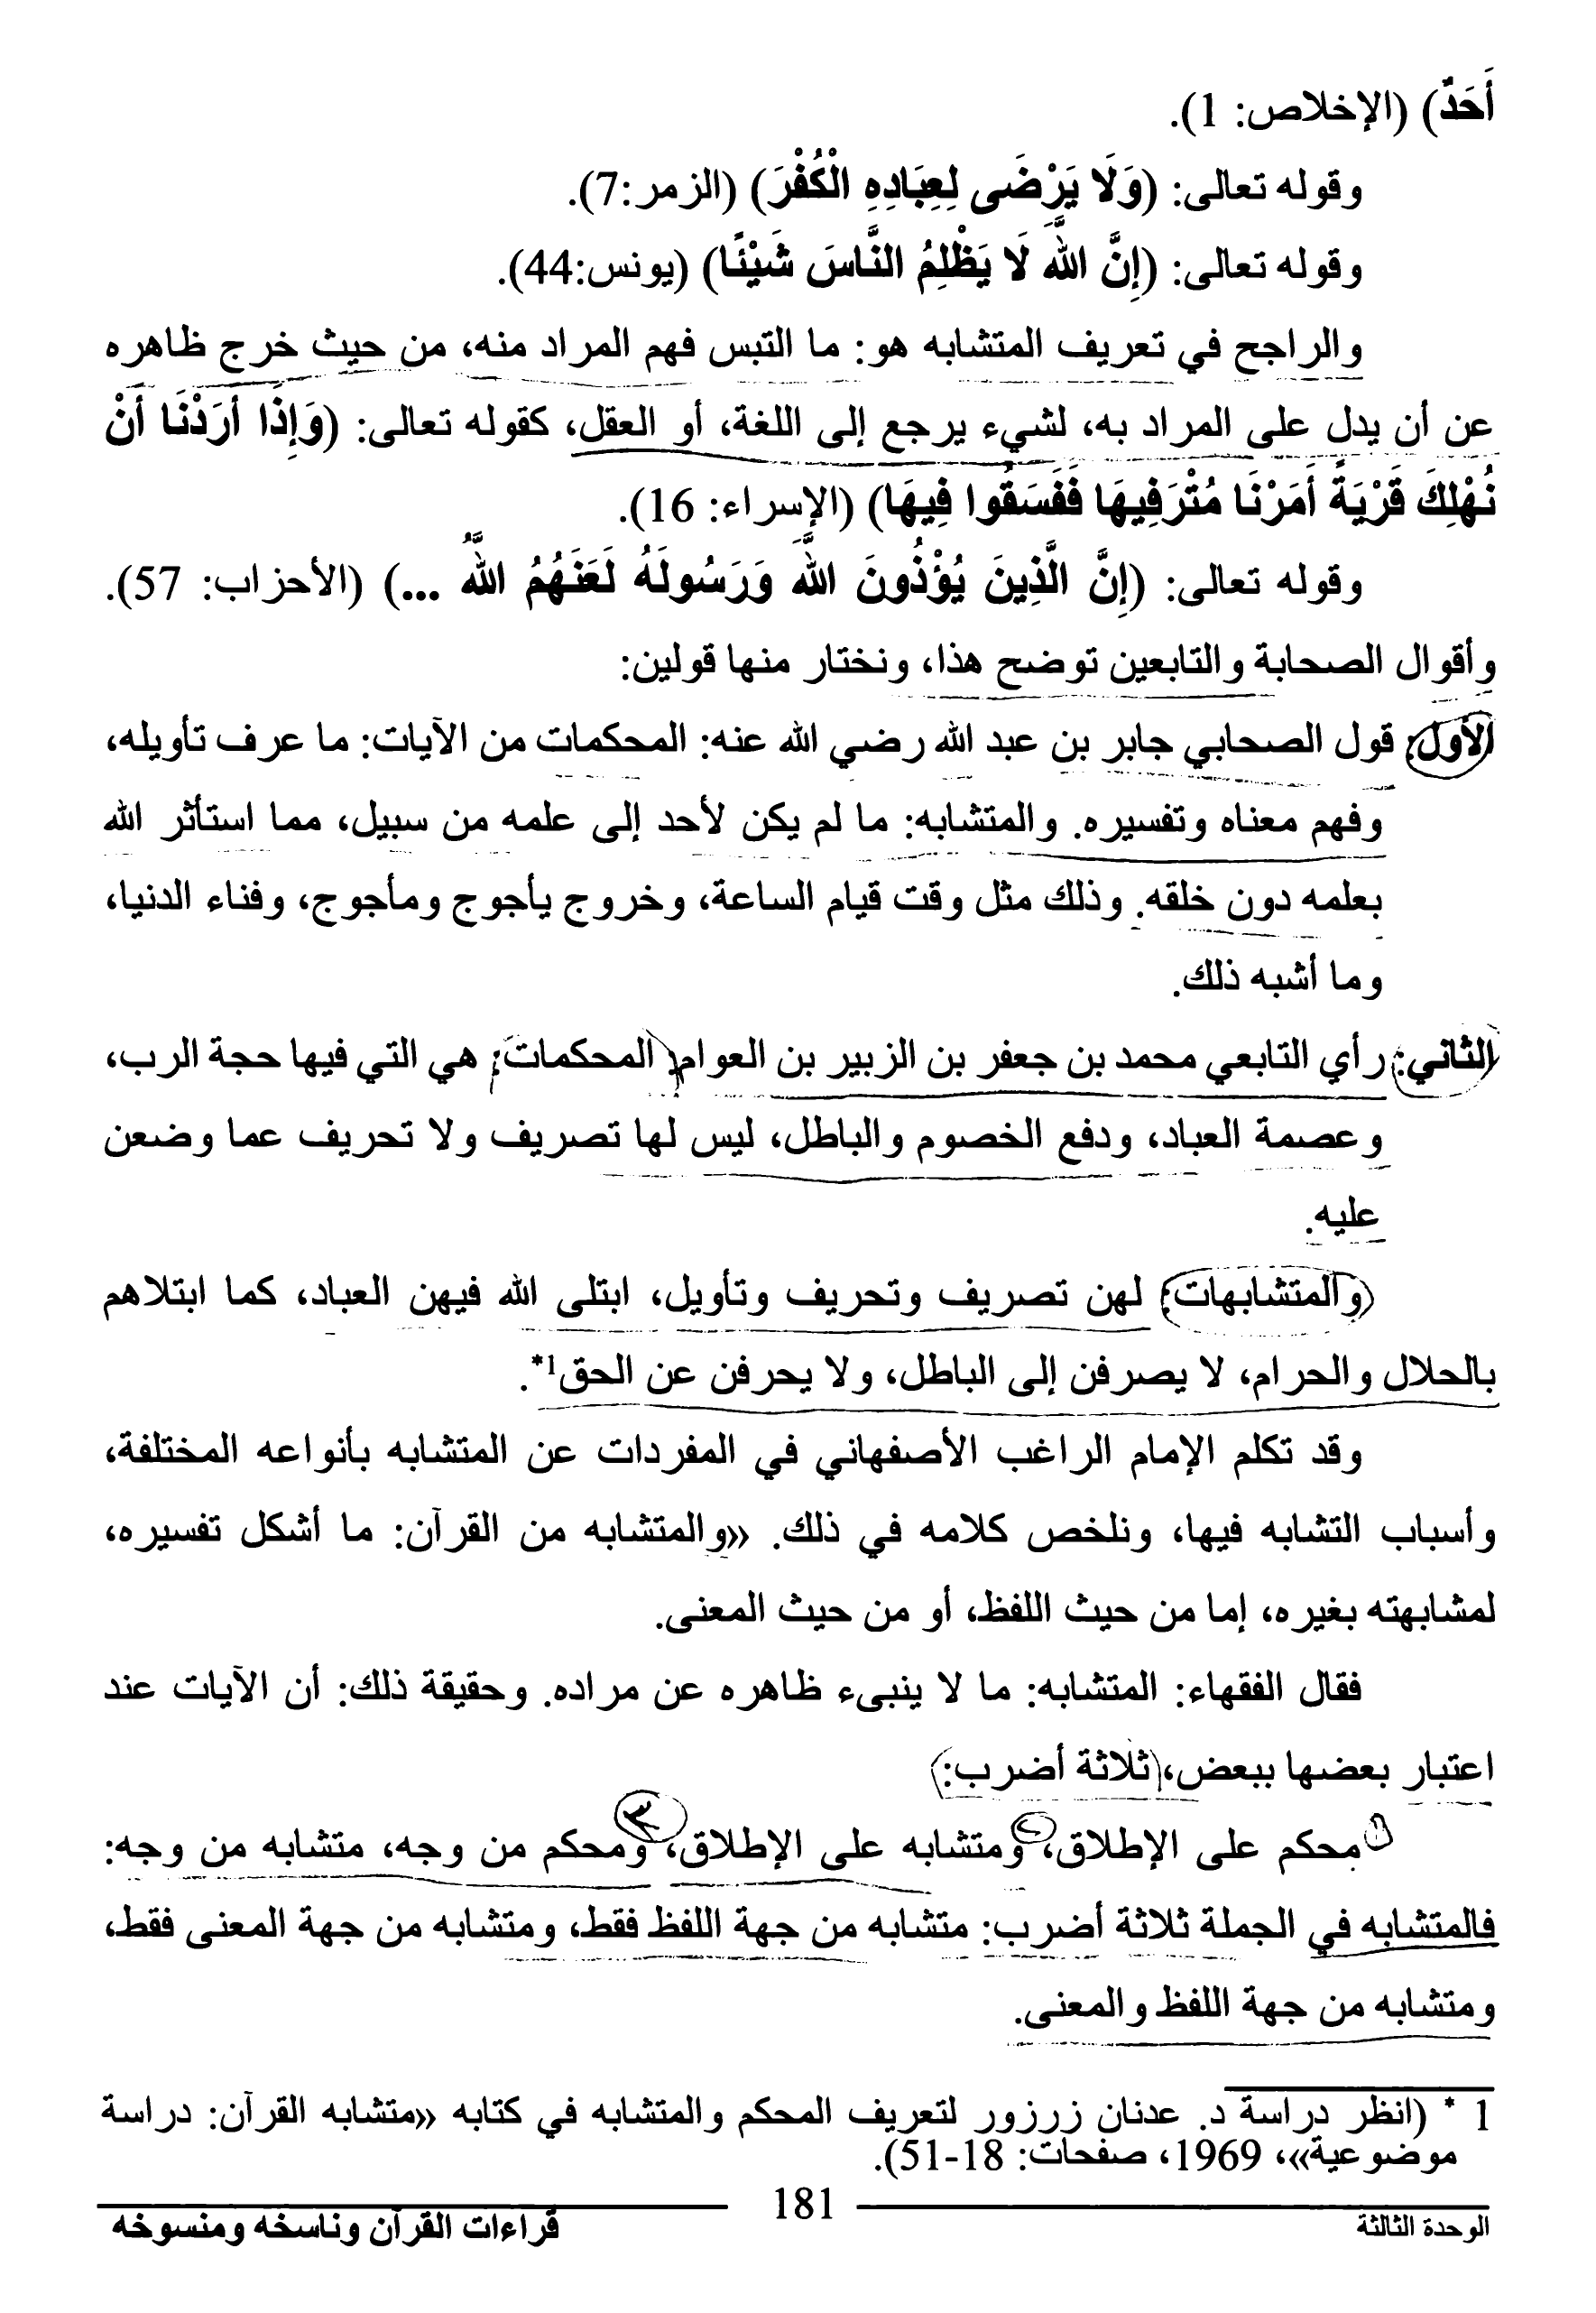 أَحَدٌ) (الإخلاص: 1).
وقوله تعالى: (وَلَا يَرْضَى لِعِبَادِهِ الْكُفْرَ) (الزمر:7).
وقوله تعالى: (إِنَّ اللَّهَ لَا يَظْلِمُ النَّاسَ شَيْئًا) (يونس:44).
والراجح في تعريف المتشابه هو: ما التبس فهم المراد منه، من حيث خرج ظاهره
عن أن يدل على المراد به، لشيء يرجع إلى اللغة، أو العقل، كقوله تعالى: (وَإِذَا أَرَدْنَا أَنْ
نُهْلِكَ قَرْيَةً أَمَرْنَا مُتْرَفِيهَا فَفَسَقُوا فِيهَا) (الإسراء: 16).
وقوله تعالى: (إِنَّ الَّذِينَ يُؤْذُونَ اللَّهَ وَرَسُولَهُ لَعَنَهُمُ اللَّهُ ...) (الأحزاب: 57).
وأقوال الصحابة والتابعين توضح هذا، ونختار منها قولين:
الأول: قول الصحابي جابر بن عبد الله رضي الله عنه: المحكمات من الآيات: ما عرف تأويله،
وفهم معناه وتفسيره. والمتشابه: ما لم يكن لأحد إلى علمه من سبيل، مما استأثر الله
بعلمه دون خلقه. وذلك مثل وقت قيام الساعة، وخروج يأجوج ومأجوج، وفناء الدنيا،
وما أشبه ذلك.
الثاني: رأي التابعي محمد بن جعفر بن الزبير بن العوام( المحكمات: هي التي فيها حجة الرب،
وعصمة العباد، ودفع الخصوم والباطل، ليس لها تصريف ولا تحريف عما وضعن
عليه.
(والمتشابهات: لهن تصريف وتحريف وتأويل، ابتلى الله فيهن العباد، كما ابتلاهم
بالحلال والحرام، لا يصرفن إلى الباطل، ولا يحرفن عن الحق1*.
وقد تكلم الإمام الراغب الأصفهاني في المفردات عن المتشابه بأنواعه المختلفة،
وأسباب التشابه فيها، ونلخص كلامه في ذلك. «والمتشابه من القرآن: ما أشكل تفسيره،
لمشابهته بغيره، إما من حيث اللفظ، أو من حيث المعنى.
فقال الفقهاء: المتشابه: ما لا ينبىء ظاهره عن مراده. وحقيقة ذلك: أن الآيات عند
اعتبار بعضها ببعض،(ثلاثة أضرب:)
١ محكم على الإطلاق، ٢ ومتشابه على الإطلاق، ٣ ومحكم من وجه، متشابه من وجه:
فالمتشابه في الجملة ثلاثة أضرب: متشابه من جهة اللفظ فقط، ومتشابه من جهة المعنى فقط،
ومتشابه من جهة اللفظ والمعنى.
1 * (انظر دراسة د. عدنان زرزور لتعريف المحكم والمتشابه في كتابه «متشابه القرآن: دراسة
موضوعية»، 1969، صفحات: 18-51).
الوحدة الثالثة 181 قراءات القرآن وناسخه ومنسوخه